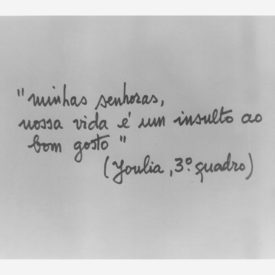 "minhas senhoras,
nossa vida é um insulto ao
bom gosto"
(Youlia, 3º quadro)